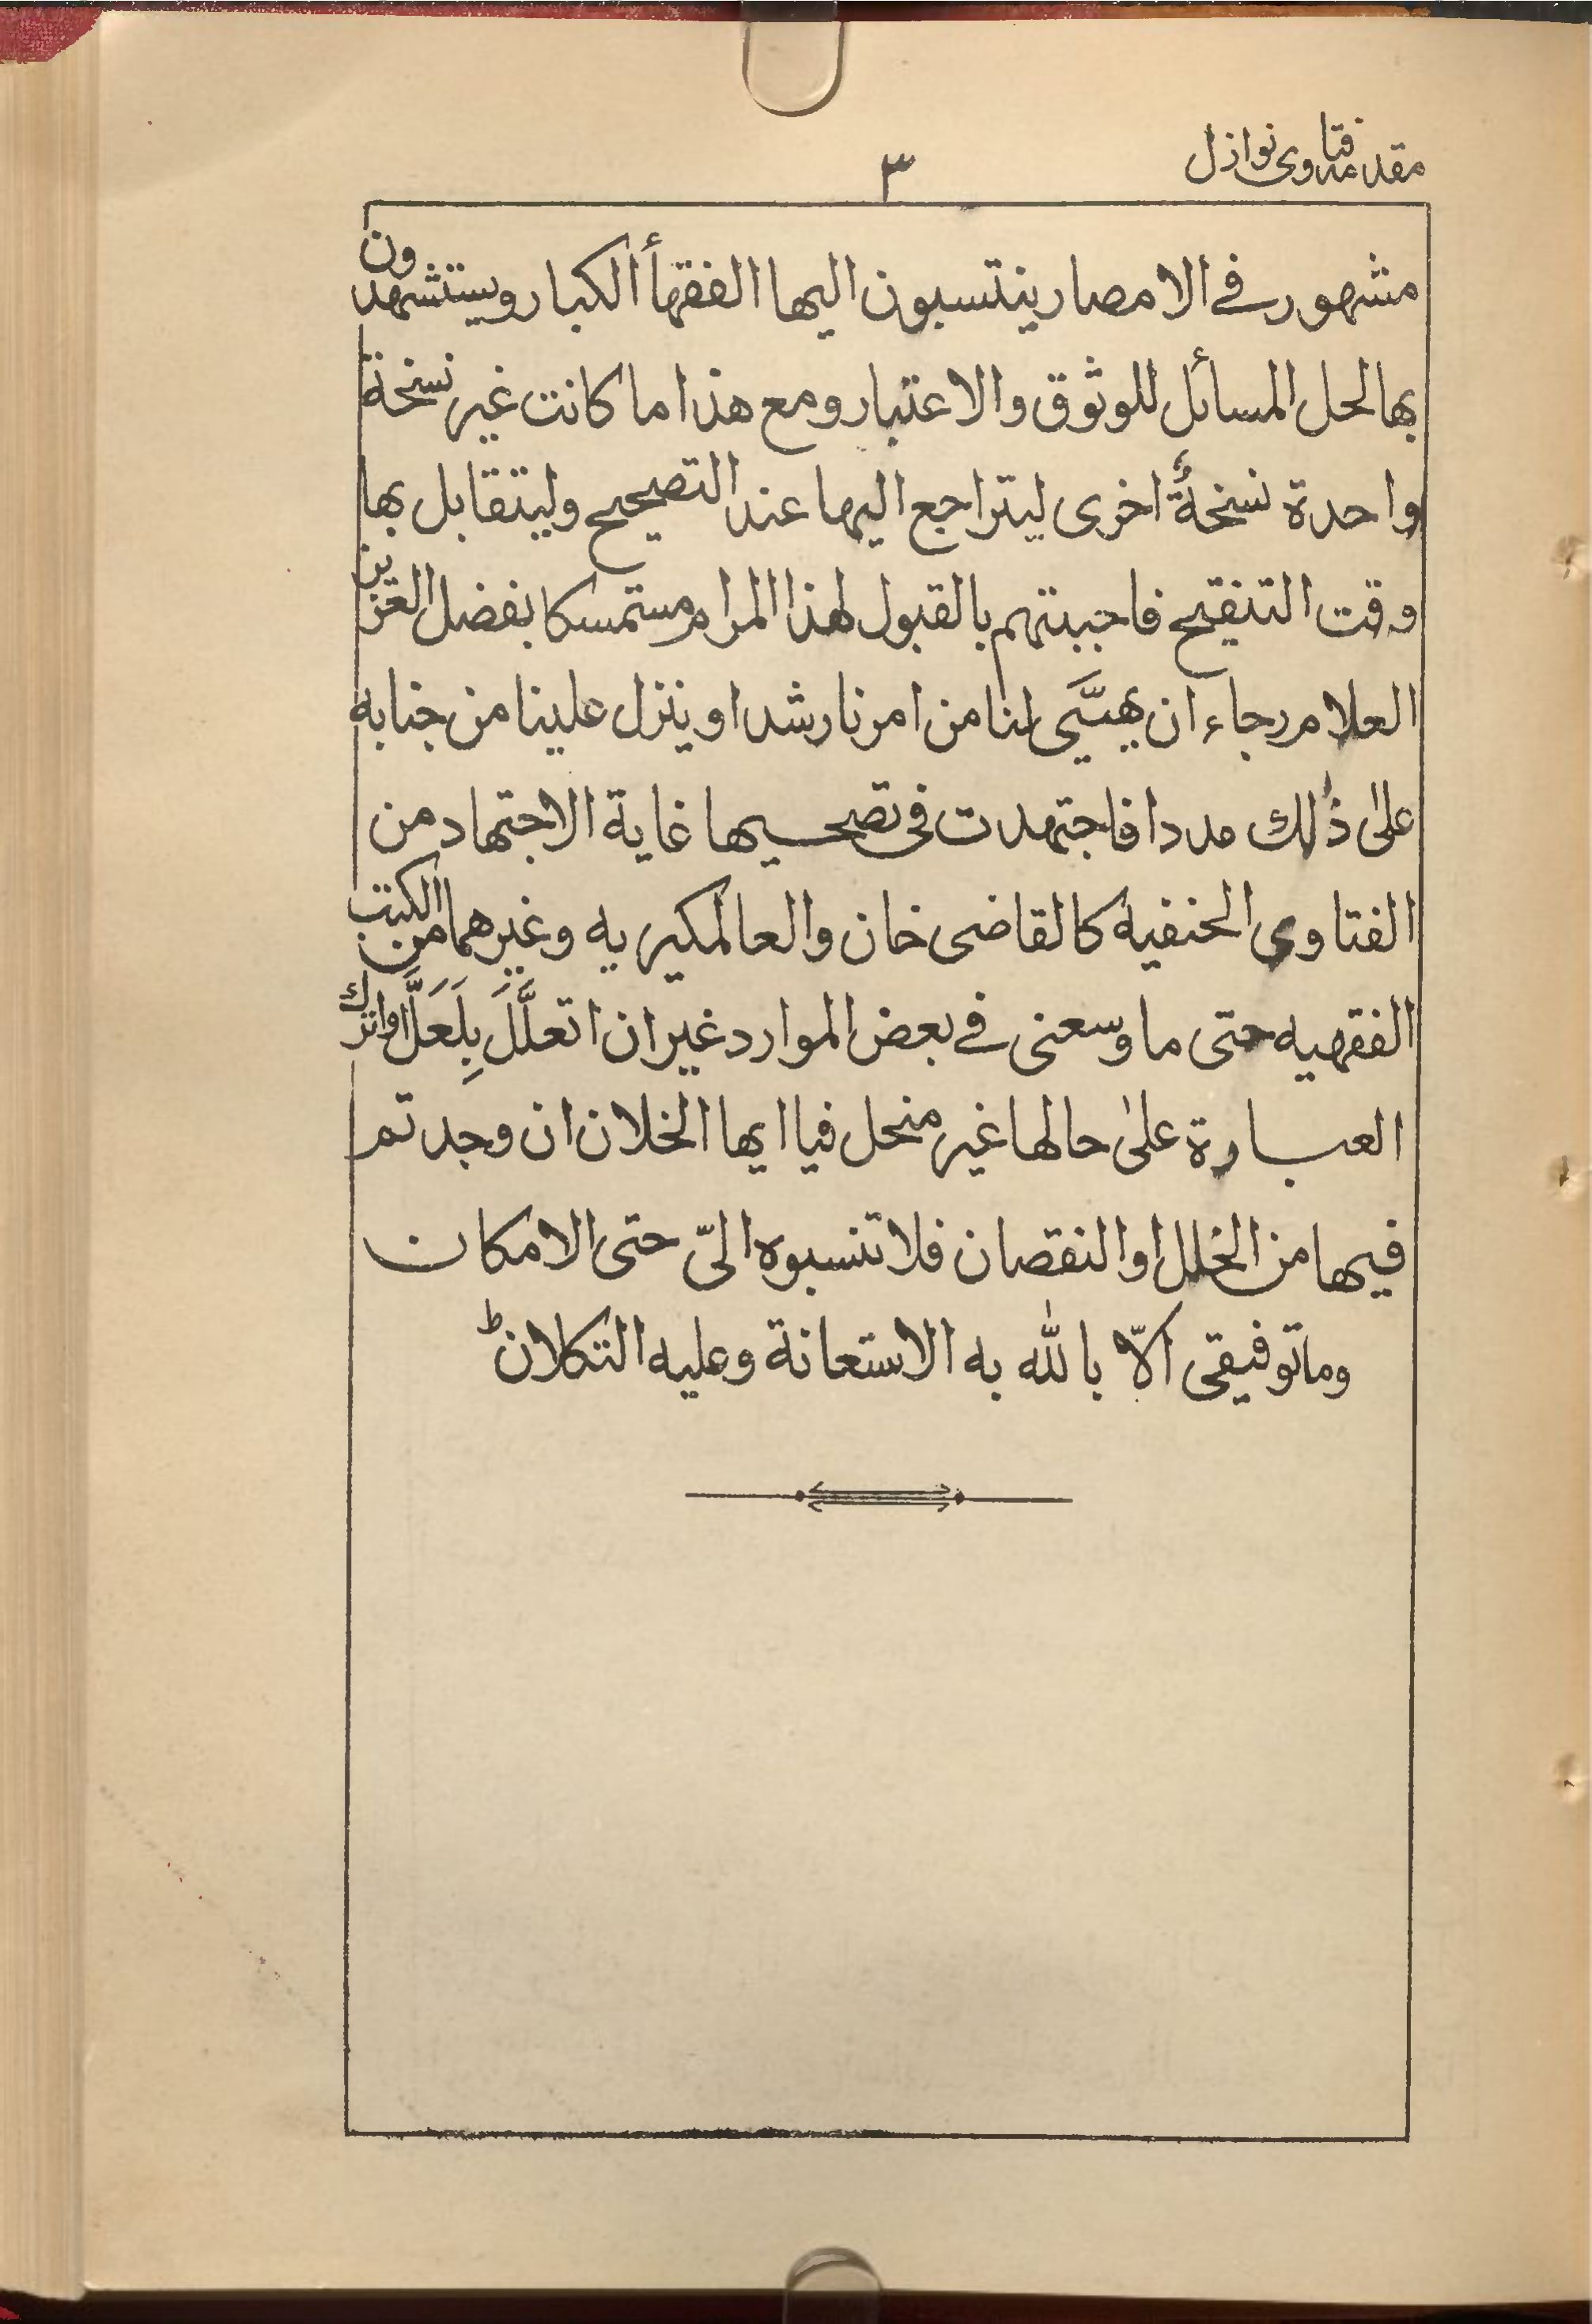 مقدمه فتاوى نوازل
٣
مشهور فى الامصار ينتسبون اليها الفقهأ الكبار ويستشهدون
بها لحل المسائل للوثوق والاعتبار ومع هذا ما كانت غير نسخة
واحدة نسخةٌ اخرى ليتراجع اليها عند التصحيح وليتقابل بها
وقت التنقيح فاجبتهم بالقبول لهذا المرام مستمسكا بفضل العزيز
العلام رجاء ان يهيّئ لنا من امرنا رشدا وينزل علينا من جنابه
علىٰ ذٰلك مددا فاجتهدت فى تصحيحها غاية الاجتهاد من
الفتاوى الحنفيه كالقاضى خان والعالمكيريه وغيرهما من الكتب
الفقهيه حتى ما وسعنى فى بعض الموارد غير ان اتعلَّلَ بِلَعَلَّ او اترك
العبارة علىٰ حالها غير منحل فيا ايها الخلان ان وجدتم
فيها من الخلل او النقصان فلا تنسبوه الىّ حتى الامكان
وما توفيقى الّا بالله به الاستعانة وعليه التكلان ط